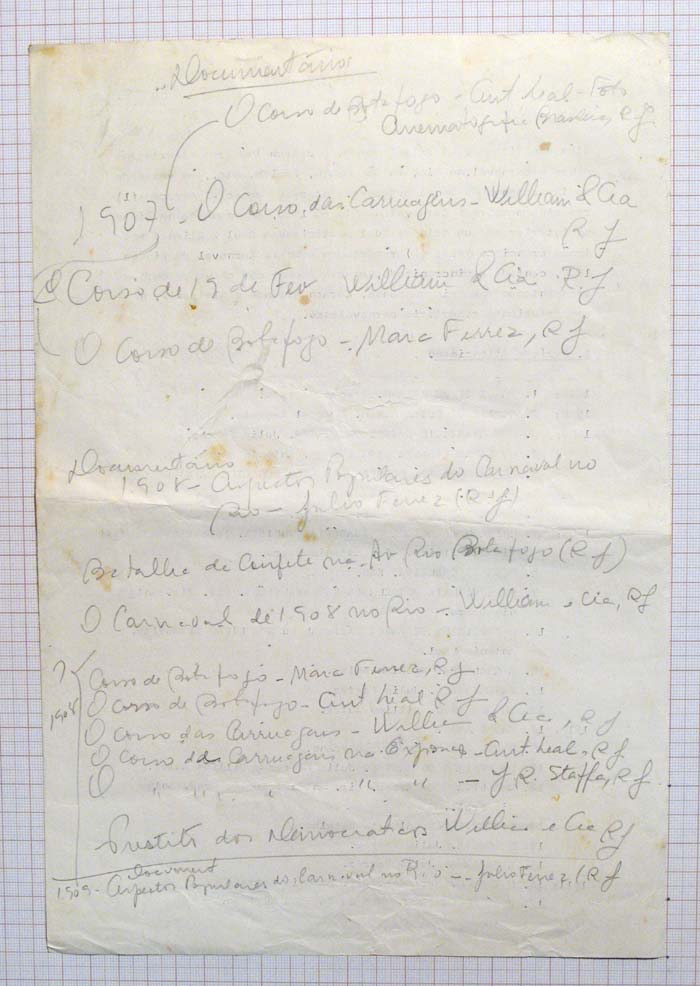 Documentário
O Corso de Botafogo - Ant Leal - Foto
Cinematografia Brasileira, R J
1907 - O Corso das Carruagens - William & Cia
R J
O Corso de 19 de Fev William & Cia R. J
O Corso de Botafogo - Marc Ferrez, R J
Documentário
1908 - Aspectos Populares do Carnaval no
Rio - Julio Ferrez (R J)
Batalha de Confete na Av Rio Botafogo (R J)
O Carnaval de 1908 no Rio - William e Cia, R J
1908
Corso de Botafogo - Marc Ferrez, R J
O Corso de Botafogo - Ant Leal R J
O Corso das Carruagens - William & Cia, R J
O Corso das Carruagens na - Ant. Leal, R J
O " " " " " - J R. Staffa, R J
Prestito dos Democraticos William e Cia R J
Document
1909 - Aspectos Populares do Carnaval no Rio - Julio Ferrez, (R J